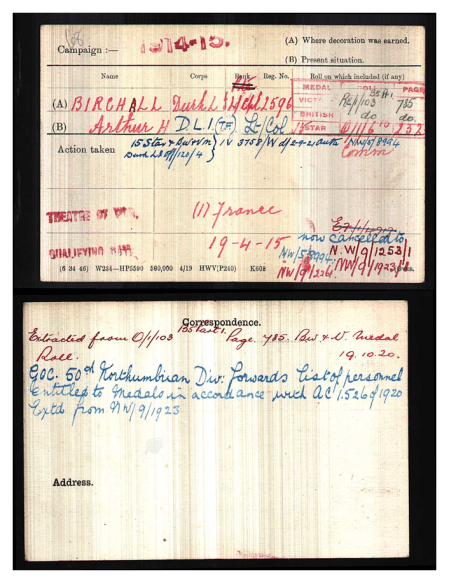 Campaign :— 1914-15.
(A) Where decoration was earned.
(B) Present situation.
Name Corps Rank Reg. No. Roll on which included (if any)
MEDAL ROLL PAGE
(A) BIRCHALL Durh L I 2596
VICTORY 785
BRITISH do. do.
(B) Arthur H D.L.I. (TF) Lt/Col
STAR 232
Action taken 15 Star & BW & VM } IV 3758/W d/
Durh LI Off/120/4 } NW/5/8994
Comm
THEATRE OF WAR. (1) France
QUALIFYING DATE. 19-4-15
now cancelled to
NW/5/8994. N.W/9/1253/1
NW/9/1923/1
(6 34 46) W234—HP5590 500,000 4/19 HWV(P240) K608
Correspondence.
Extracted from O/1/103 Page. 785. BW & V. Medal
Roll. 19.10.20.
GOC. 50th Northumbrian Div. forwards list of personnel
Entitled to Medals in accordance with ACI.526 of 1920
Extd from NW/9/1923
Address.